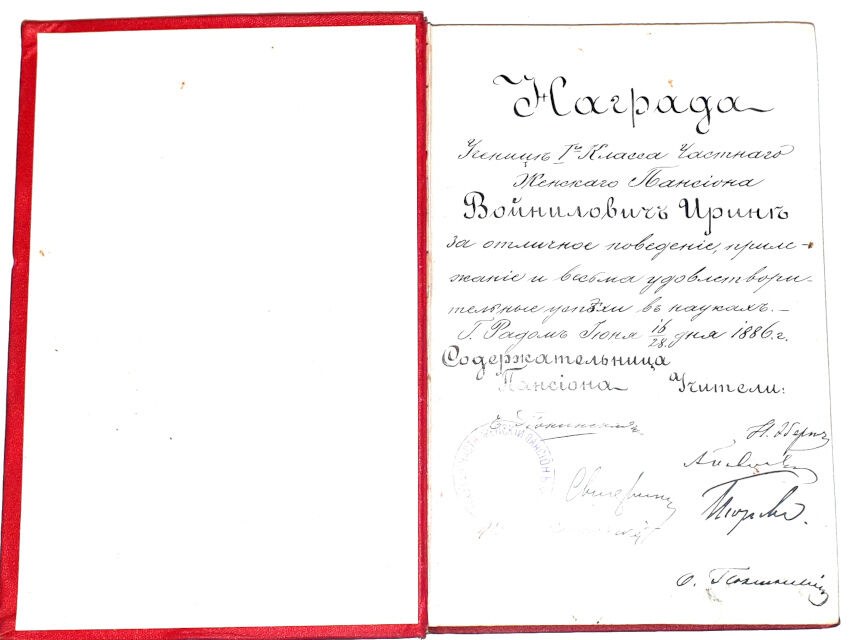 Награда
Ученицѣ Iго Класса Частнаго
Женскаго Пансіона
Войниловичъ Иринѣ
за отличное поведеніе, приле-
жаніе и весьма удовлетвори-
тельные успѣхи въ наукахъ. –
Г. Радомъ Іюня 16/28 дня 1886 г.
Содержательница
Пансіона Учители: